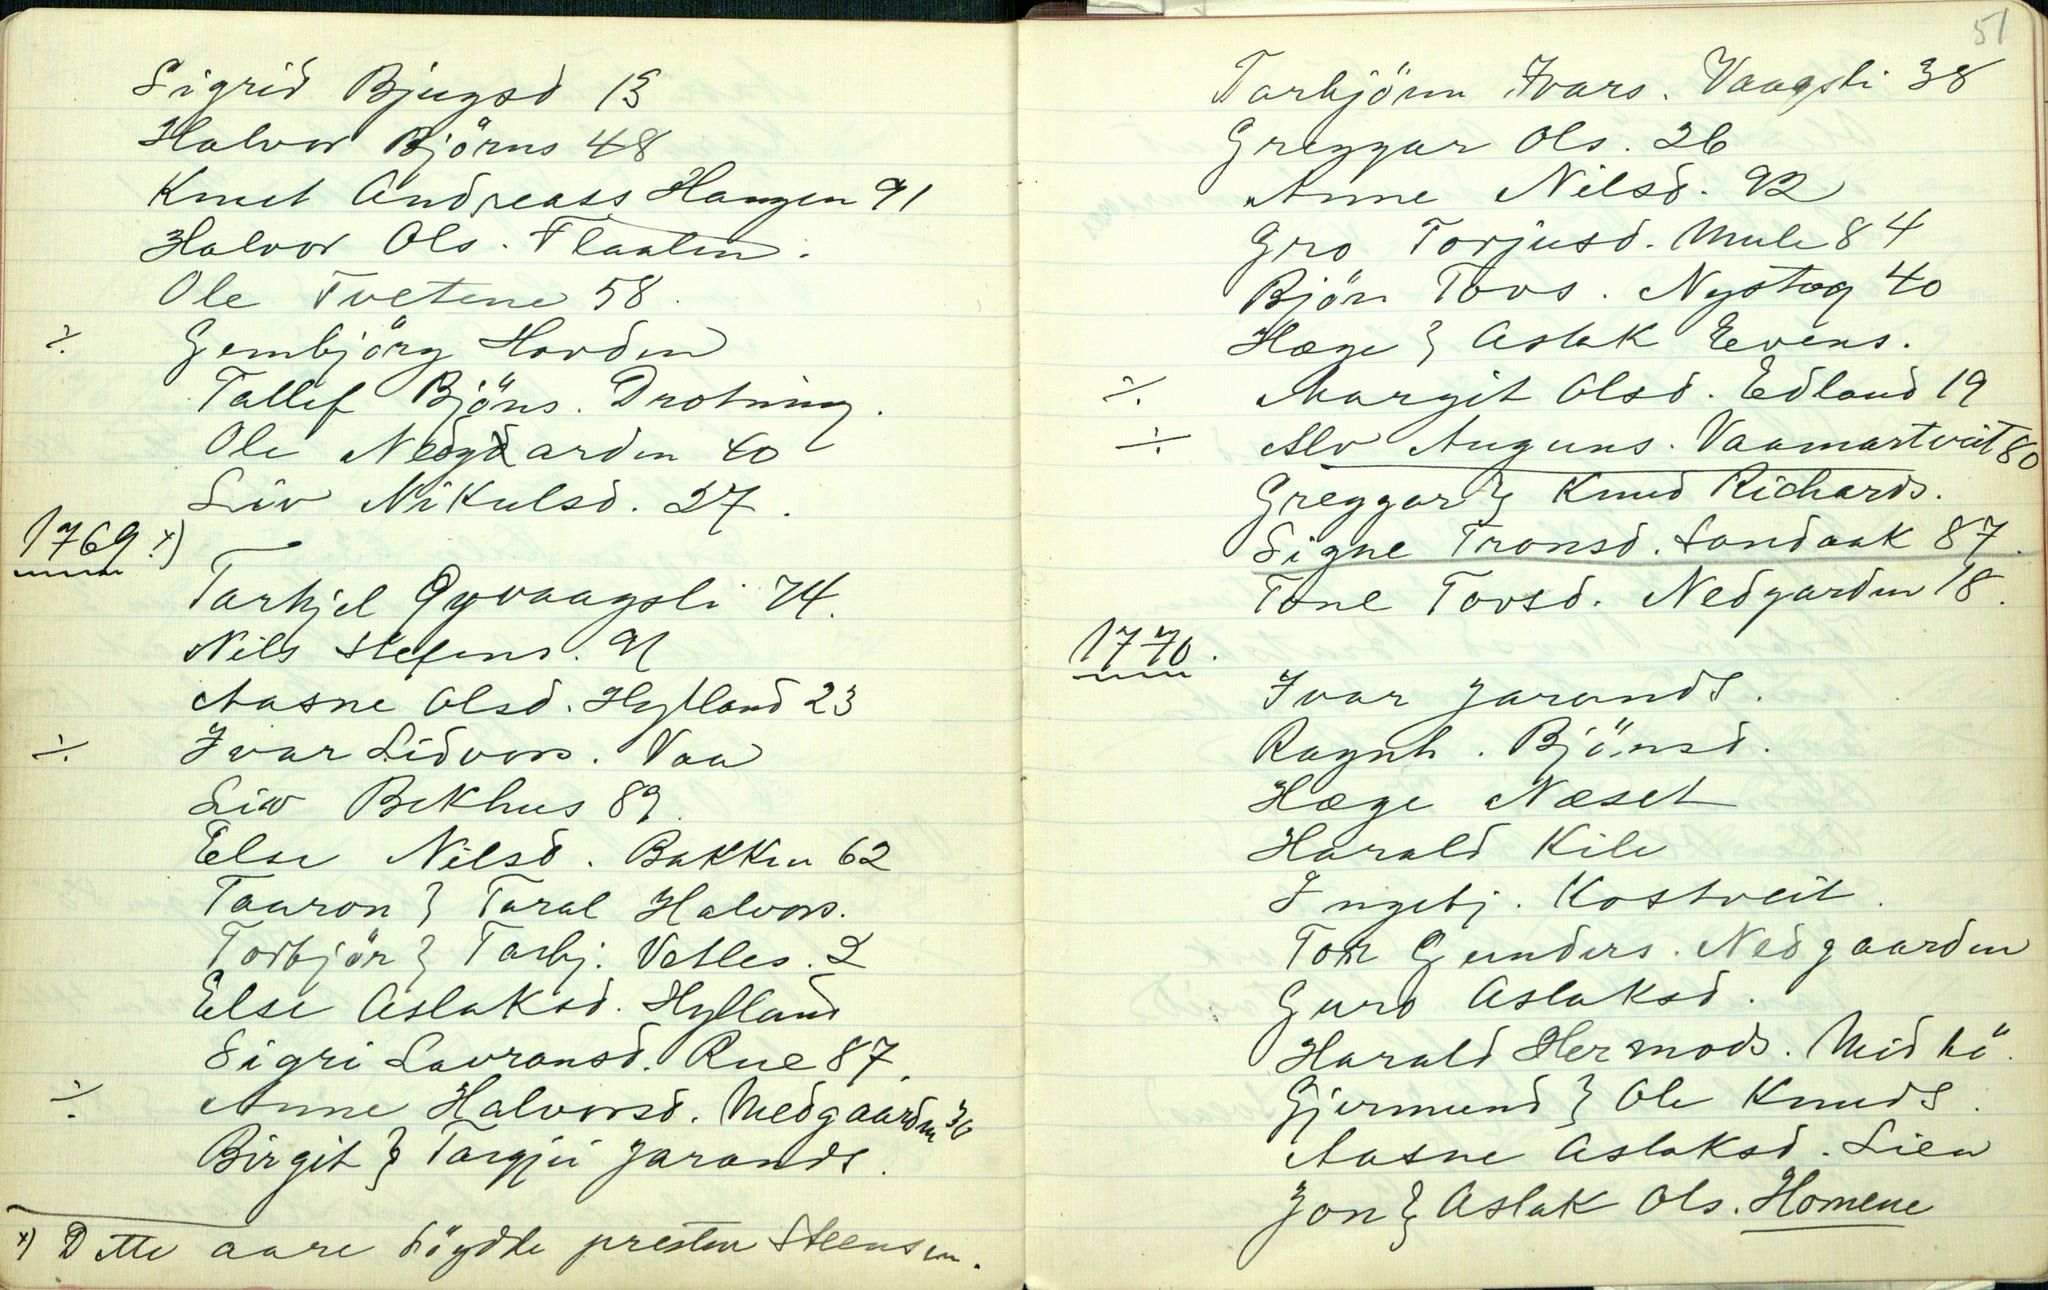 Sigrid Bjugsd 13
Halvor Björns 48
Knut Andreass Haugen 91
Halvor Ols. Flaaten.
Ole Tvetene 58.
÷ Gunbjörg Hovden
Tallef Björns. Drotning.
Ole Nedgarden 40
Liv Nikulsd. 27.
1769 x)
Tarkjel Öyvaagsli 74.
Nils Stefens. 91
Aasne Olsd. Hylland 23
÷ Ivar Lidvors. Vaa
Liv Bekhus 89.
Else Nilsd. Bakken 62
Taaron } Taral Halvors.
Torbjör } Tarbj. Vetles. 2
Else Aslaksd. Hylland
Sigri Lavransd. Rue 87.
÷ Anne Halvorsd. Nedgaarden 30
Birgit } Targjei Jarands.
x) Dette aare döydde presten Steensen.
51
Tarbjörn Ivars. Vaagsli 38
Greggar Ols. 26
Anne Nilsd. 92
Gro Torjusd. Mule 84
Björn Tovs. Nystog 40
Hæge } Aslak Evens.
÷ Margit Olsd. Edland 19
÷ Alv Auguns. Vaamartveit 80
Greggar } Knud Richards.
Signe Tronsd. Sandaak 87.
Tone Tovsd. Nedgarden 18.
1770.
Ivar Jarands.
Ragnh. Björnsd.
Hæge Næset
Harald Kile
Ingebj. Kostveit.
Tor Gunders. Nedgaarden
Guro Aslaksd.
Harald Hermods. Midbö.
Gjermund } Ole Knuds.
Aasne Aslaksd. Lien
Jon } Aslak Ols. Homene